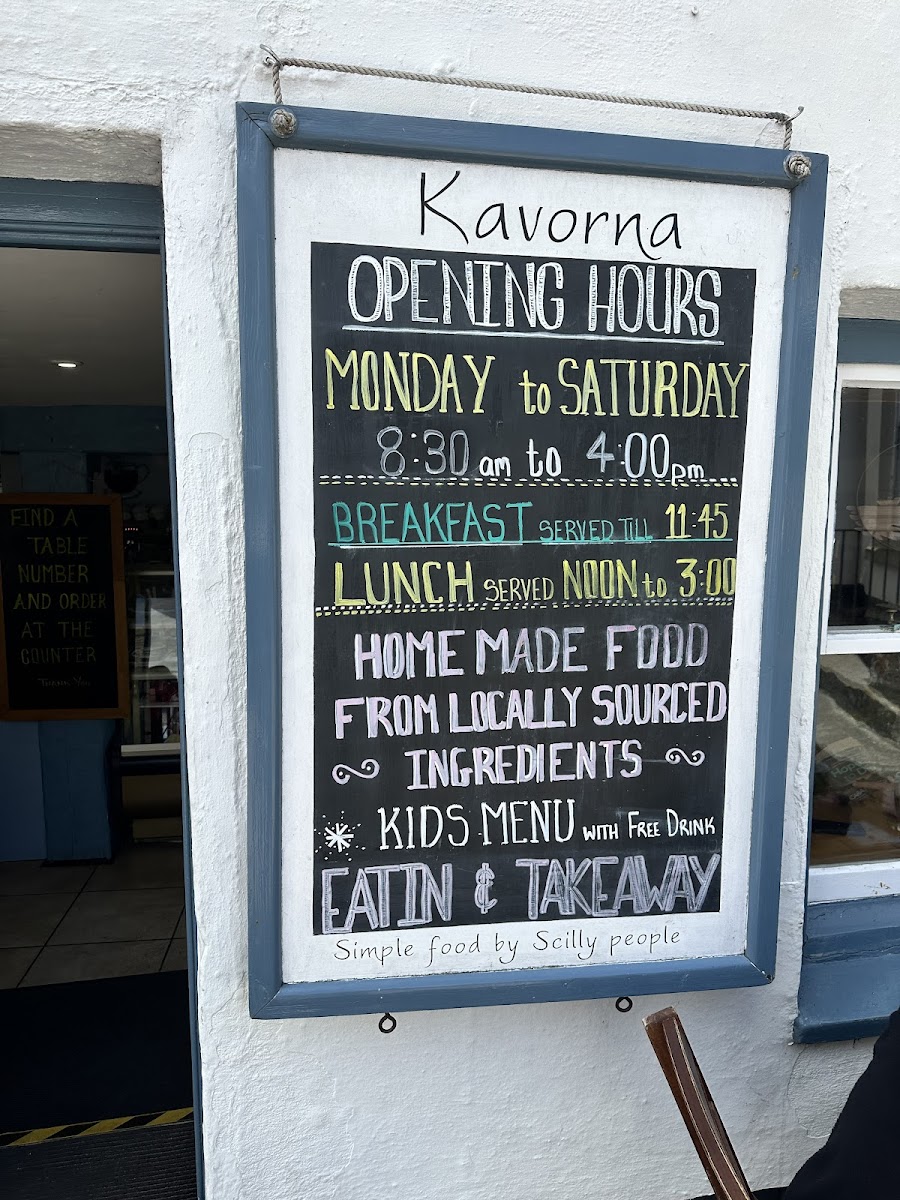 Kavorna
OPENING HOURS
MONDAY to SATURDAY
8:30 am to 4:00 pm
BREAKFAST SERVED TILL 11:45
LUNCH SERVED NOON to 3:00
HOME MADE FOOD
FROM LOCALLY SOURCED
INGREDIENTS
KIDS MENU WITH FREE DRINK
EAT IN & TAKEAWAY
Simple food by Scilly people
FIND A
TABLE
NUMBER
AND ORDER
AT THE
COUNTER
Thank You